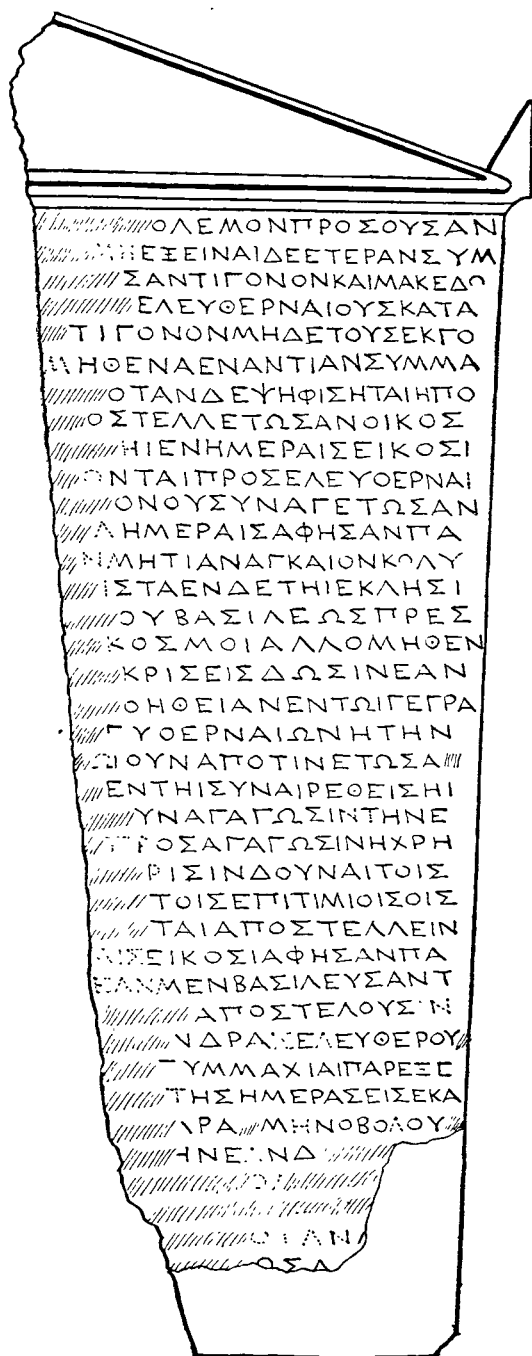 ΟΛΕΜΟΝΠΡΟΣΟΥΣΑΝ
ΕΞΕΙΝΑΙΔΕΕΤΕΡΑΝΣΥΜ
ΣΑΝΤΙΓΟΝΟΝΚΑΙΜΑΚΕΔΟ
ΕΛΕΥΘΕΡΝΑΙΟΥΣΚΑΤΑ
ΤΙΓΟΝΟΝΜΗΔΕΤΟΥΣΕΚΓΟ
ΜΗΘΕΝΑΕΝΑΝΤΙΑΝΣΥΜΜΑ
ΟΤΑΝΔΕΨΗΦΙΣΗΤΑΙΗΠΟ
ΟΣΤΕΛΛΕΤΩΣΑΝΟΙΚΟΣ
ΗΙΕΝΗΜΕΡΑΙΣΕΙΚΟΣΙ
ΩΝΤΑΙΠΡΟΣΕΛΕΥΘΕΡΝΑΙ
ΟΝΟΥΣΥΝΑΓΕΤΩΣΑΝ
ΗΜΕΡΑΙΣΑΦΗΣΑΝΠΑ
ΜΗΤΙΑΝΑΓΚΑΙΟΝΚΟΛΥ
ΙΣΤΑΕΝΔΕΤΗΙΕΚΛΗΣΙ
ΟΥΒΑΣΙΛΕΩΣΠΡΕΣ
ΚΟΣΜΟΙΑΛΛΟΜΗΘΕΝ
ΚΡΙΣΕΙΣΔΩΣΙΝΕΑΝ
ΟΗΘΕΙΑΝΕΝΤΩΙΓΕΓΡΑ
ΥΘΕΡΝΑΙΩΝΗΤΗΝ
ΟΥΝΑΠΟΤΙΝΕΤΩΣΑ
ΕΝΤΗΙΣΥΝΑΙΡΕΘΕΙΣΗΙ
ΥΝΑΓΑΓΩΣΙΝΤΗΝΕ
ΡΟΣΑΓΑΓΩΣΙΝΗΧΡΗ
ΡΙΣΙΝΔΟΥΝΑΙΤΟΙΣ
ΤΟΙΣΕΠΙΤΙΜΙΟΙΣΟΙΣ
ΤΑΙΑΠΟΣΤΕΛΛΕΙΝ
ΑΙΣΕΙΚΟΣΙΑΦΗΣΑΝΠΑ
ΕΑΝΜΕΝΒΑΣΙΛΕΥΣΑΝΤ
ΑΠΟΣΤΕΛΟΥΣΙΝ
ΝΔΡΑΣΕΛΕΥΘΕΡΟΥ
ΥΜΜΑΧΙΑΙΠΑΡΕΞΕ
ΤΗΣΗΜΕΡΑΣΕΙΣΕΚΑ
ΡΑ ΜΗΝΟΒΟΛΟΥ
ΗΝΕ ΝΔ
ΑΝ
ΟΣΔ